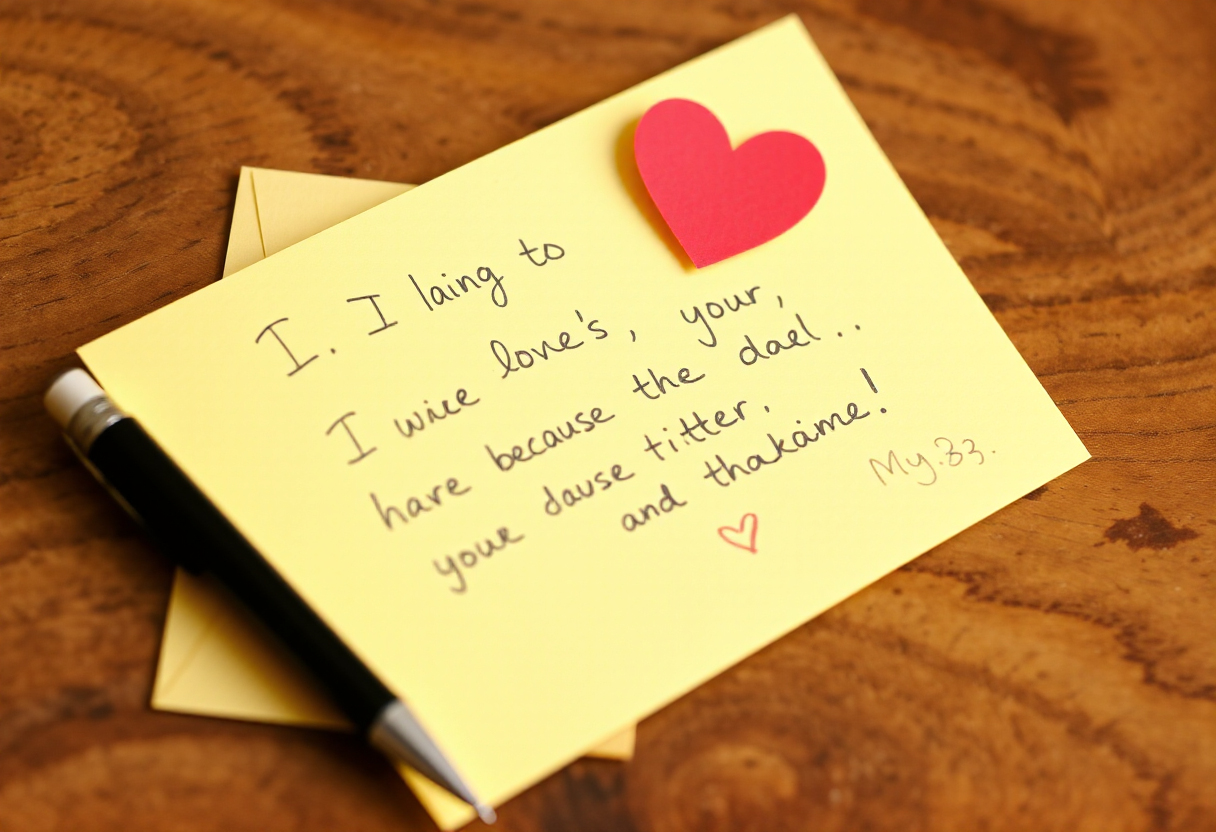 I. I laing to
I wice lone's, your,
have because the dael..
youe dause titter.
and thakaime!
My.33.